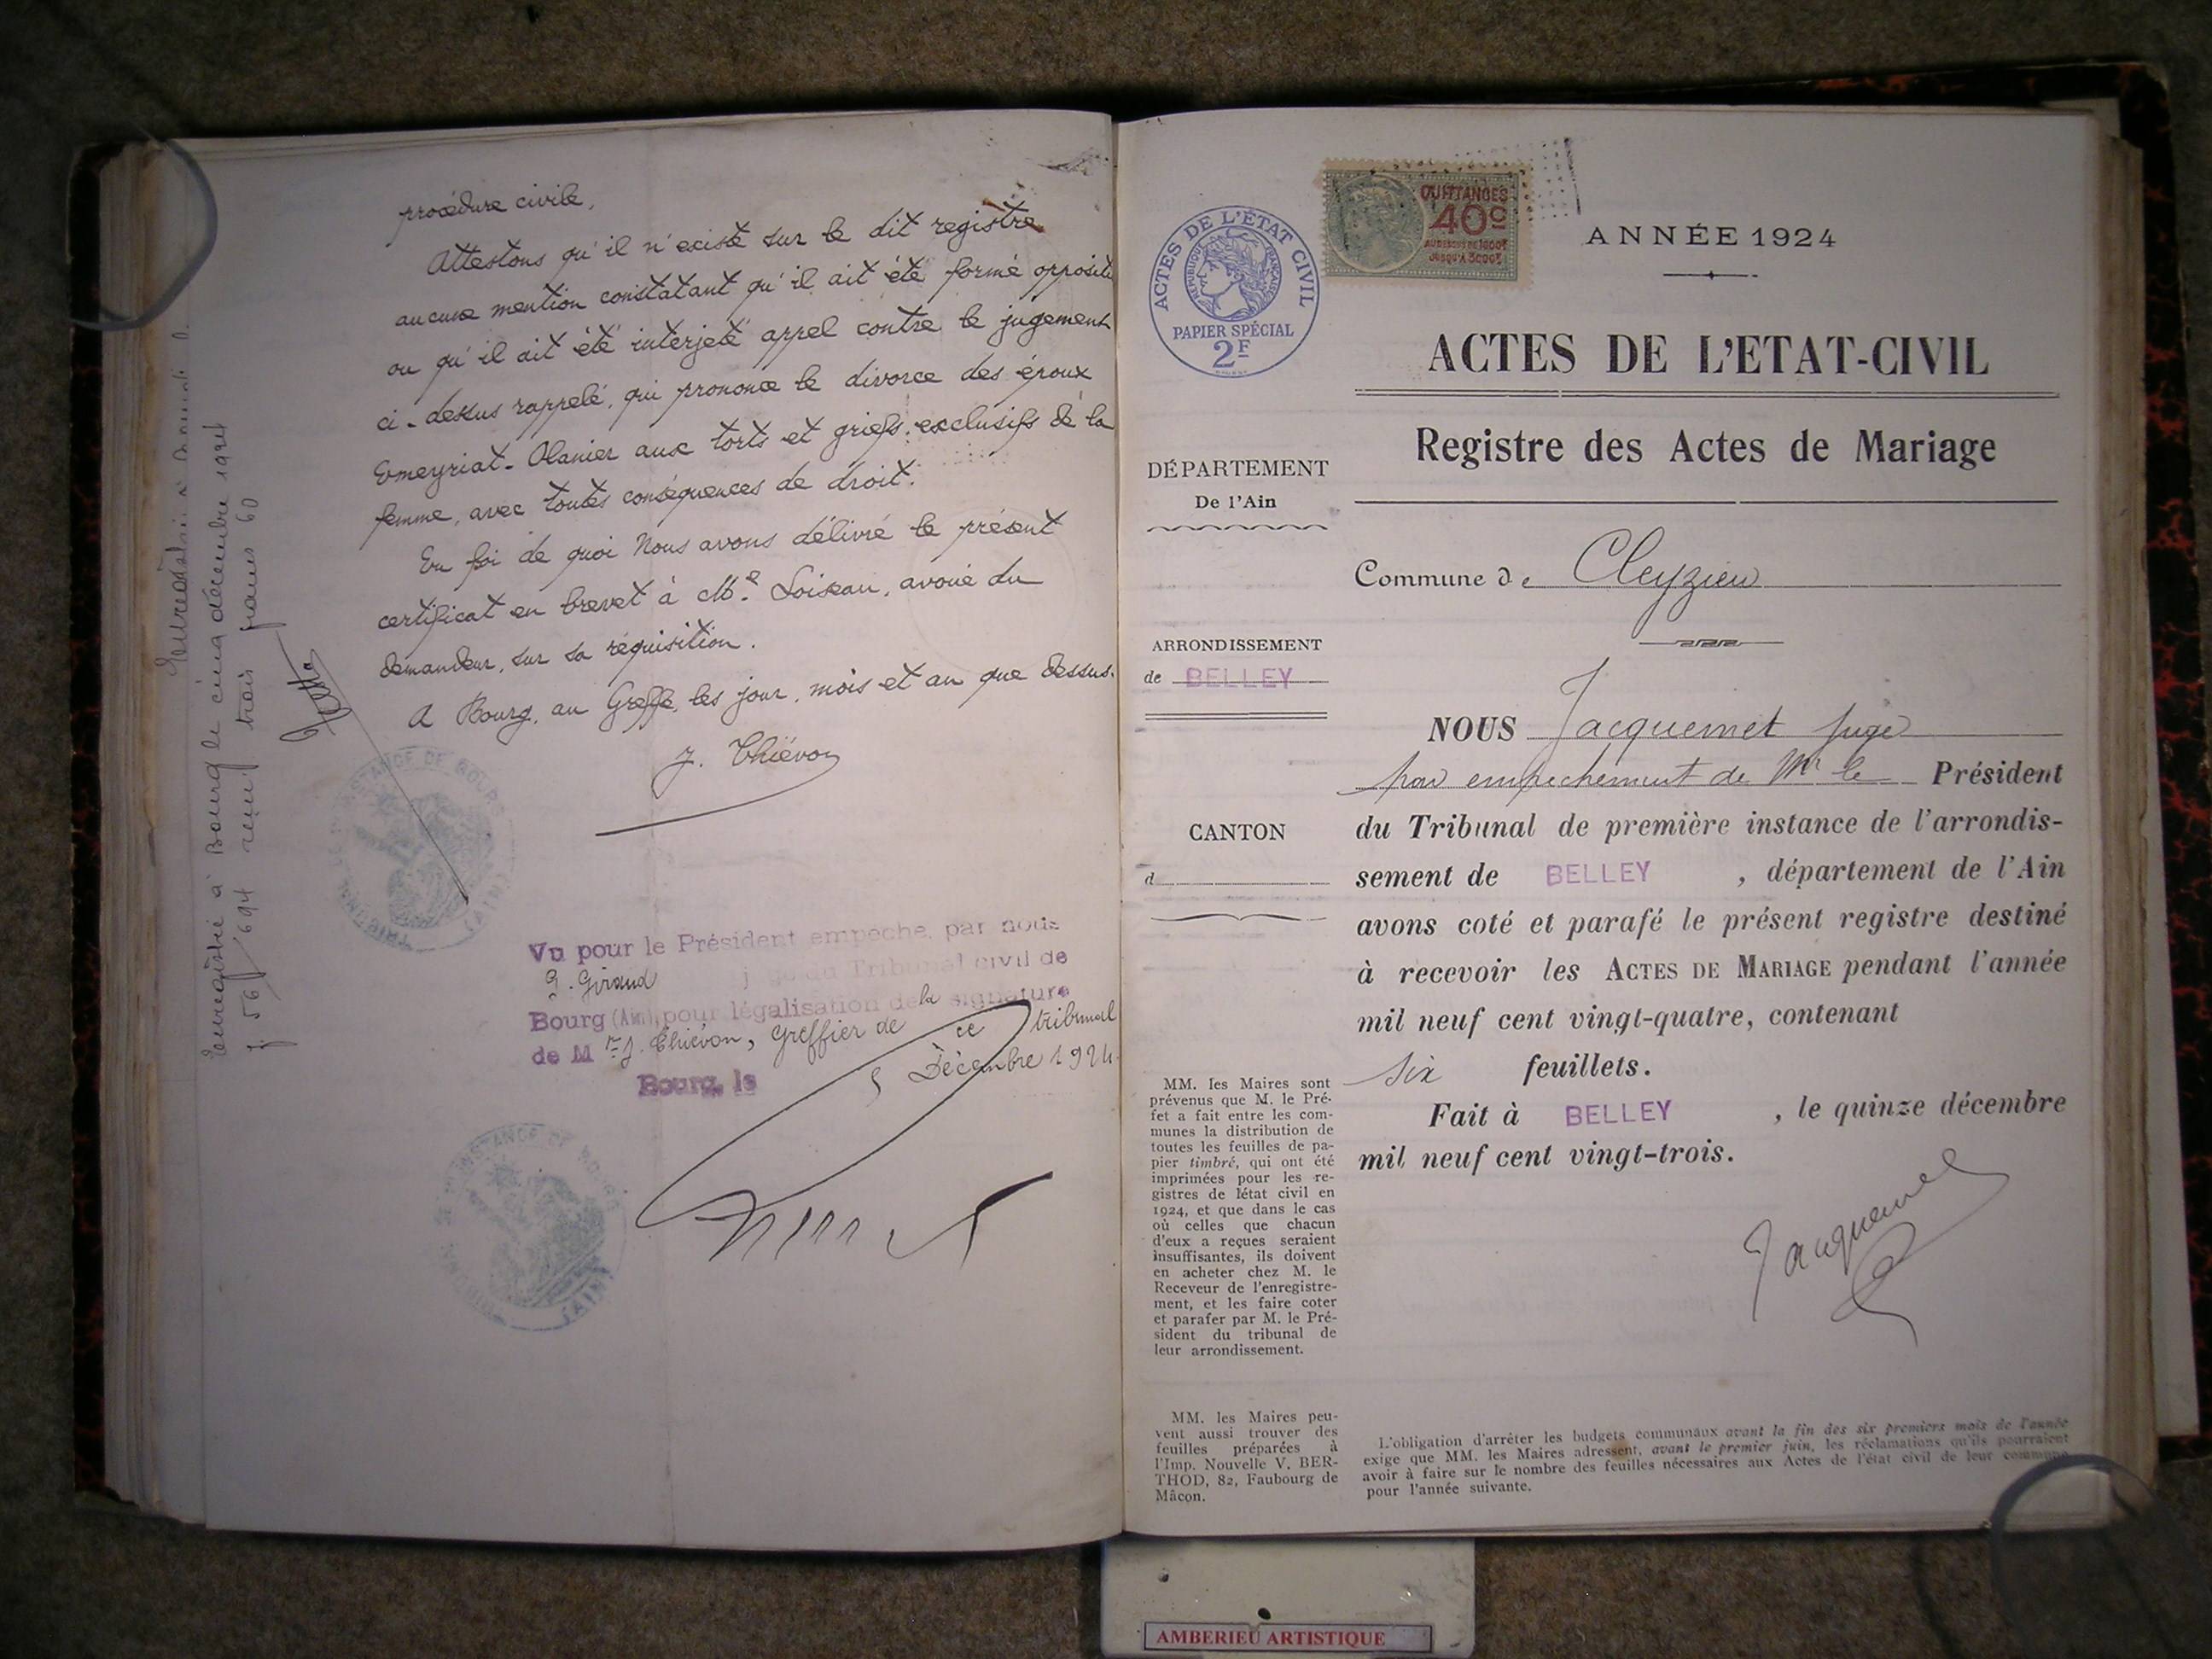 procédure civile,
Attestons qu'il n'existe sur le dit registre
aucune mention constatant qu'il ait été formé oppositi
ou qu'il ait été interjeté appel contre le jugement
ci-dessus rappelé, qui prononce le divorce des époux
Emeyriat-Olanier aux torts et griefs exclusifs de la
femme, avec toutes conséquences de droit.
En foi de quoi Nous avons délivré le présent
certificat en brevet à Me Loiseau, avoué du
demandeur, sur sa réquisition.
A Bourg, au Greffe, les jour, mois et an que dessus.
J. Thiévon
Enregistré à Bourg le cinq décembre 1924
reçu trois francs 60
Vu pour le Président empeché par nous
G. Giraud juge au Tribunal civil de
Bourg (Ain) pour légalisation de la signature
de Mr J. Thiévon, Greffier de ce tribunal
Bourg, le 5 Décembre 1924
ACTES DE L'ÉTAT CIVIL
RÉPUBLIQUE FRANÇAISE
PAPIER SPÉCIAL
2F
QUITTANCES
40c
AU DESSUS DE 1000F
JUSQU'À 3000F
ANNÉE 1924
ACTES DE L'ETAT-CIVIL
Registre des Actes de Mariage
DÉPARTEMENT
De l'Ain
Commune de Cleyzieu
ARRONDISSEMENT
de BELLEY
CANTON
d
NOUS Jacquemet Juge
par empechement de Mr le Président
du Tribunal de première instance de l'arrondis-
sement de BELLEY, département de l'Ain
avons coté et parafé le présent registre destiné
à recevoir les ACTES DE MARIAGE pendant l'année
mil neuf cent vingt-quatre, contenant
six feuillets.
Fait à BELLEY, le quinze décembre
mil neuf cent vingt-trois.
Jacquemet
MM. les Maires sont
prévenus que M. le Pré-
fet a fait entre les com-
munes la distribution de
toutes les feuilles de pa-
pier timbré, qui ont été
imprimées pour les re-
gistres de l'état civil en
1924, et que dans le cas
où celles que chacun
d'eux a reçues seraient
insuffisantes, ils doivent
en acheter chez M. le
Receveur de l'enregistre-
ment, et les faire coter
et parafer par M. le Pré-
sident du tribunal de
leur arrondissement.
MM. les Maires peu-
vent aussi trouver des
feuilles préparées à
l'Imp. Nouvelle V. BER-
THOD, 82, Faubourg de
Mâcon.
L'obligation d'arrêter les budgets communaux avant la fin des six premiers mois de l'année
exige que MM. les Maires adressent, avant le premier juin, les réclamations qu'ils pourraient
avoir à faire sur le nombre des feuilles nécessaires aux Actes de l'état civil de leur commune
pour l'année suivante.
AMBERIEU ARTISTIQUE